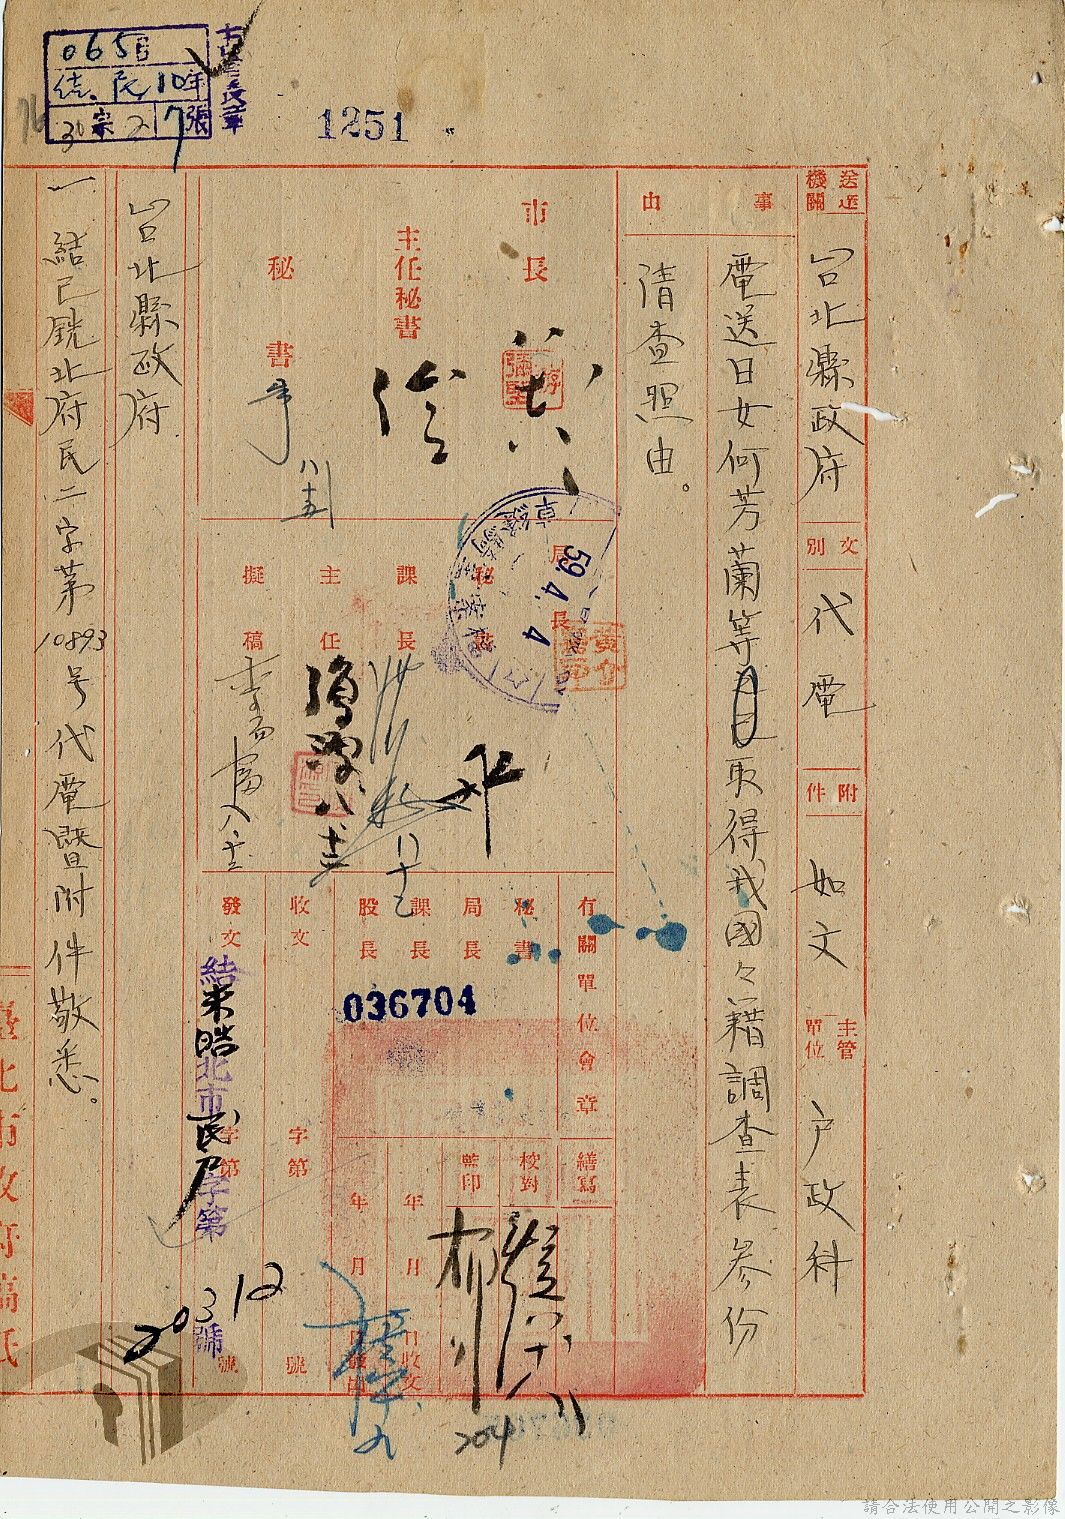 065B
民10年
宗2 7張
1251
送達機關
台北縣政府
文別
代電
附件
如文
主管單位
戶政科
事由
電送日女何芳蘭等取得我國々籍調查表參份
請查照由。
市長
主任秘書
秘書
局長
秘書
課長
主任
擬稿
59.4.4
有關單位會章
秘書
局長
課長
股長
036704
繕寫
校對
監印
年月日收文
年月日
收文
字第
號
發文
結未皓北市民戶字第
20312
號
204
台北縣政府
一 結巳銑北府民二字第10893号代電暨附件敬悉。
臺北市政府稿紙
請合法使用公開之影像